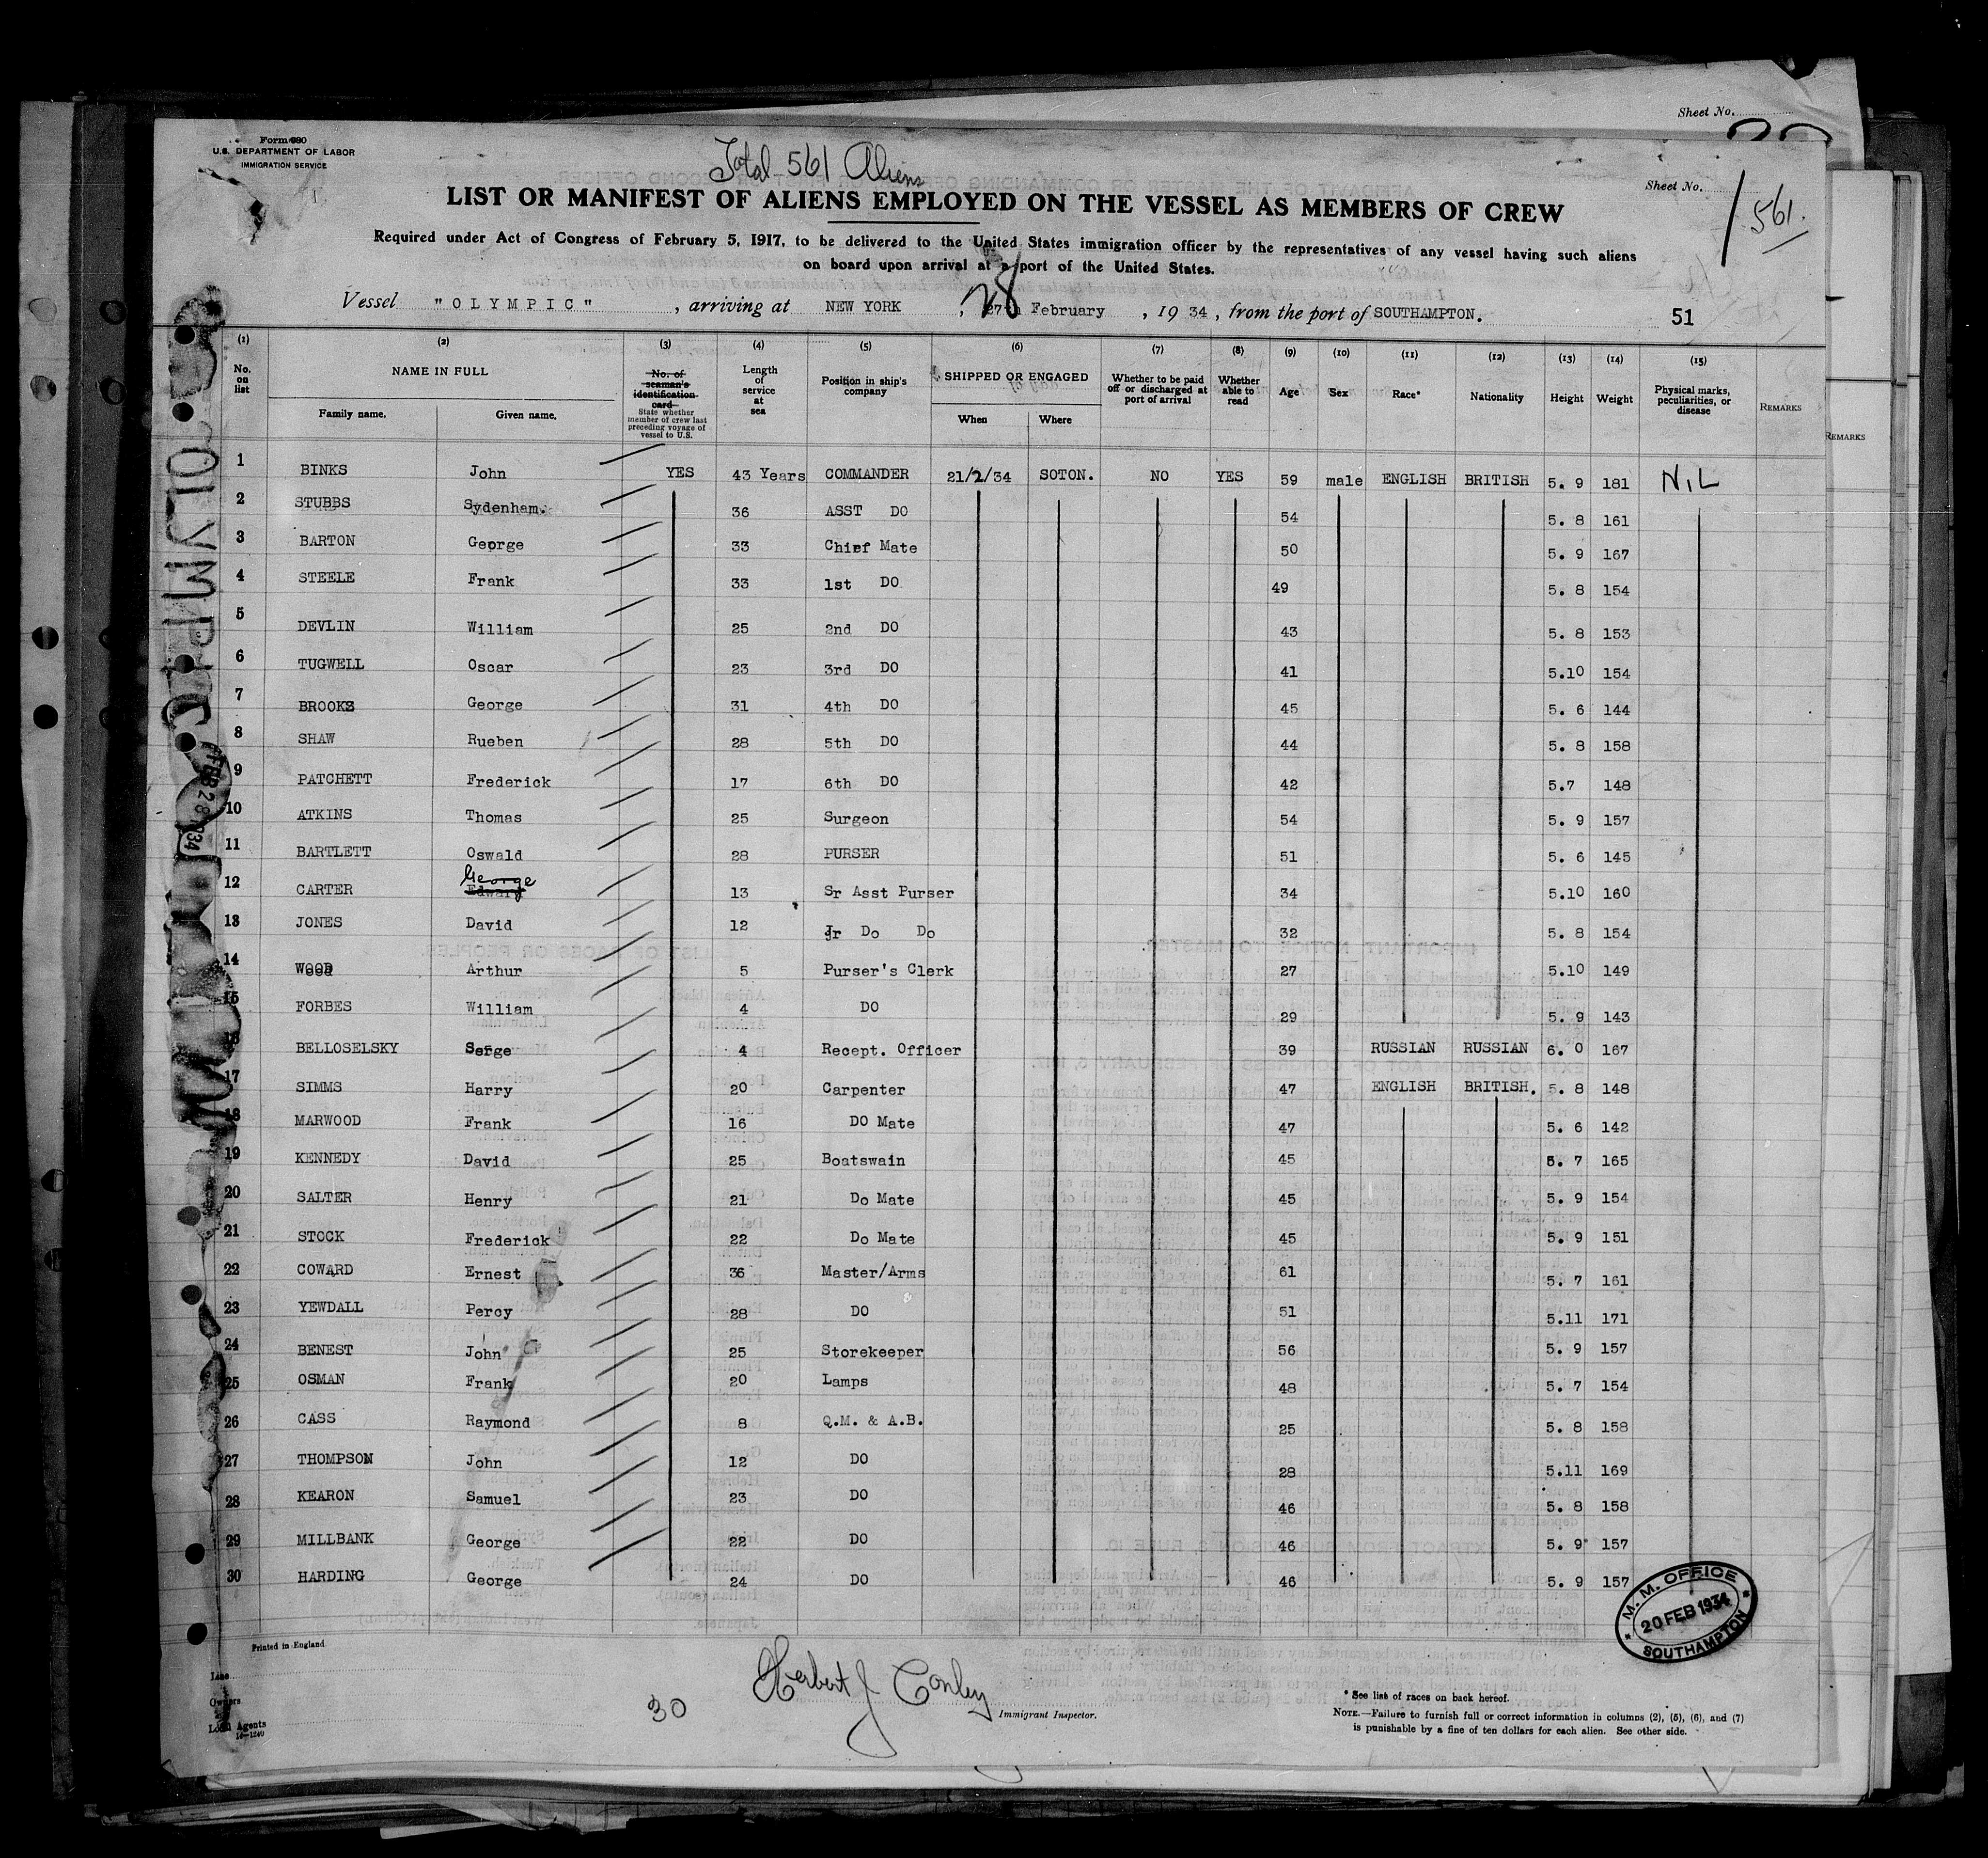 Sheet No.
Form 680
U.S. DEPARTMENT OF LABOR
IMMIGRATION SERVICE
Total 561 Aliens
Sheet No. 1
561.
LIST OR MANIFEST OF ALIENS EMPLOYED ON THE VESSEL AS MEMBERS OF CREW
Required under Act of Congress of February 5, 1917, to be delivered to the United States immigration officer by the representatives of any vessel having such aliens
on board upon arrival at a port of the United States.
Vessel "OLYMPIC", arriving at NEW YORK, 28 27th February, 1934, from the port of SOUTHAMPTON. 51
(1) (2) (3) (4) (5) (6) (7) (8) (9) (10) (11) (12) (13) (14) (15)
No. on list
NAME IN FULL
Family name. Given name.
No. of seaman's identification card
State whether member of crew last preceding voyage of vessel to U.S.
Length of service at sea
Position in ship's company
SHIPPED OR ENGAGED
When Where
Whether to be paid off or discharged at port of arrival
Whether able to read
Age
Sex
Race*
Nationality
Height
Weight
Physical marks, peculiarities, or disease
REMARKS
REMARKS
1 BINKS John YES 43 Years COMMANDER 21/2/34 SOTON. NO YES 59 male ENGLISH BRITISH 5. 9 181 NIL
2 STUBBS Sydenham. 36 ASST DO 54 5. 8 161
3 BARTON George 33 Chief Mate 50 5. 9 167
4 STEELE Frank 33 1st DO 49 5. 8 154
5 DEVLIN William 25 2nd DO 43 5. 8 153
6 TUGWELL Oscar 23 3rd DO 41 5.10 154
7 BROOKS George 31 4th DO 45 5. 6 144
8 SHAW Rueben 28 5th DO 44 5. 8 158
9 PATCHETT Frederick 17 6th DO 42 5.7 148
10 ATKINS Thomas 25 Surgeon 54 5. 9 157
11 BARTLETT Oswald 28 PURSER 51 5. 6 145
12 CARTER George Edward 13 Sr Asst Purser 34 5.10 160
13 JONES David 12 Jr Do Do 32 5. 8 154
14 WOOD Arthur 5 Purser's Clerk 27 5.10 149
15 FORBES William 4 DO 29 5. 9 143
16 BELLOSELSKY Serge 4 Recept. Officer 39 RUSSIAN RUSSIAN 6. 0 167
17 SIMMS Harry 20 Carpenter 47 ENGLISH BRITISH. 5. 8 148
18 MARWOOD Frank 16 DO Mate 47 5. 6 142
19 KENNEDY David 25 Boatswain 45 5. 7 165
20 SALTER Henry 21 Do Mate 45 5. 9 154
21 STOCK Frederick 22 Do Mate 45 5. 9 151
22 COWARD Ernest 36 Master/Arms 61 5. 7 161
23 YEWDALL Percy 28 DO 51 5.11 171
24 BENEST John 25 Storekeeper 56 5. 9 157
25 OSMAN Frank 20 Lamps 48 5. 7 154
26 CASS Raymond 8 Q.M. & A.B. 25 5. 8 158
27 THOMPSON John 12 DO 28 5.11 169
28 KEARON Samuel 23 DO 46 5. 8 158
29 MILLBANK George 22 DO 46 5. 9 157
30 HARDING George 24 DO 46 5. 9 157
OLYMPIC
FEB 28 1934
M. M. OFFICE
20 FEB 1934
SOUTHAMPTON
Printed in England
Line
Owners
Local Agents
16-1240
30
Herbert J Conley
Immigrant Inspector.
* See list of races on back hereof.
NOTE.—Failure to furnish full or correct information in columns (2), (5), (6), and (7)
is punishable by a fine of ten dollars for each alien. See other side.